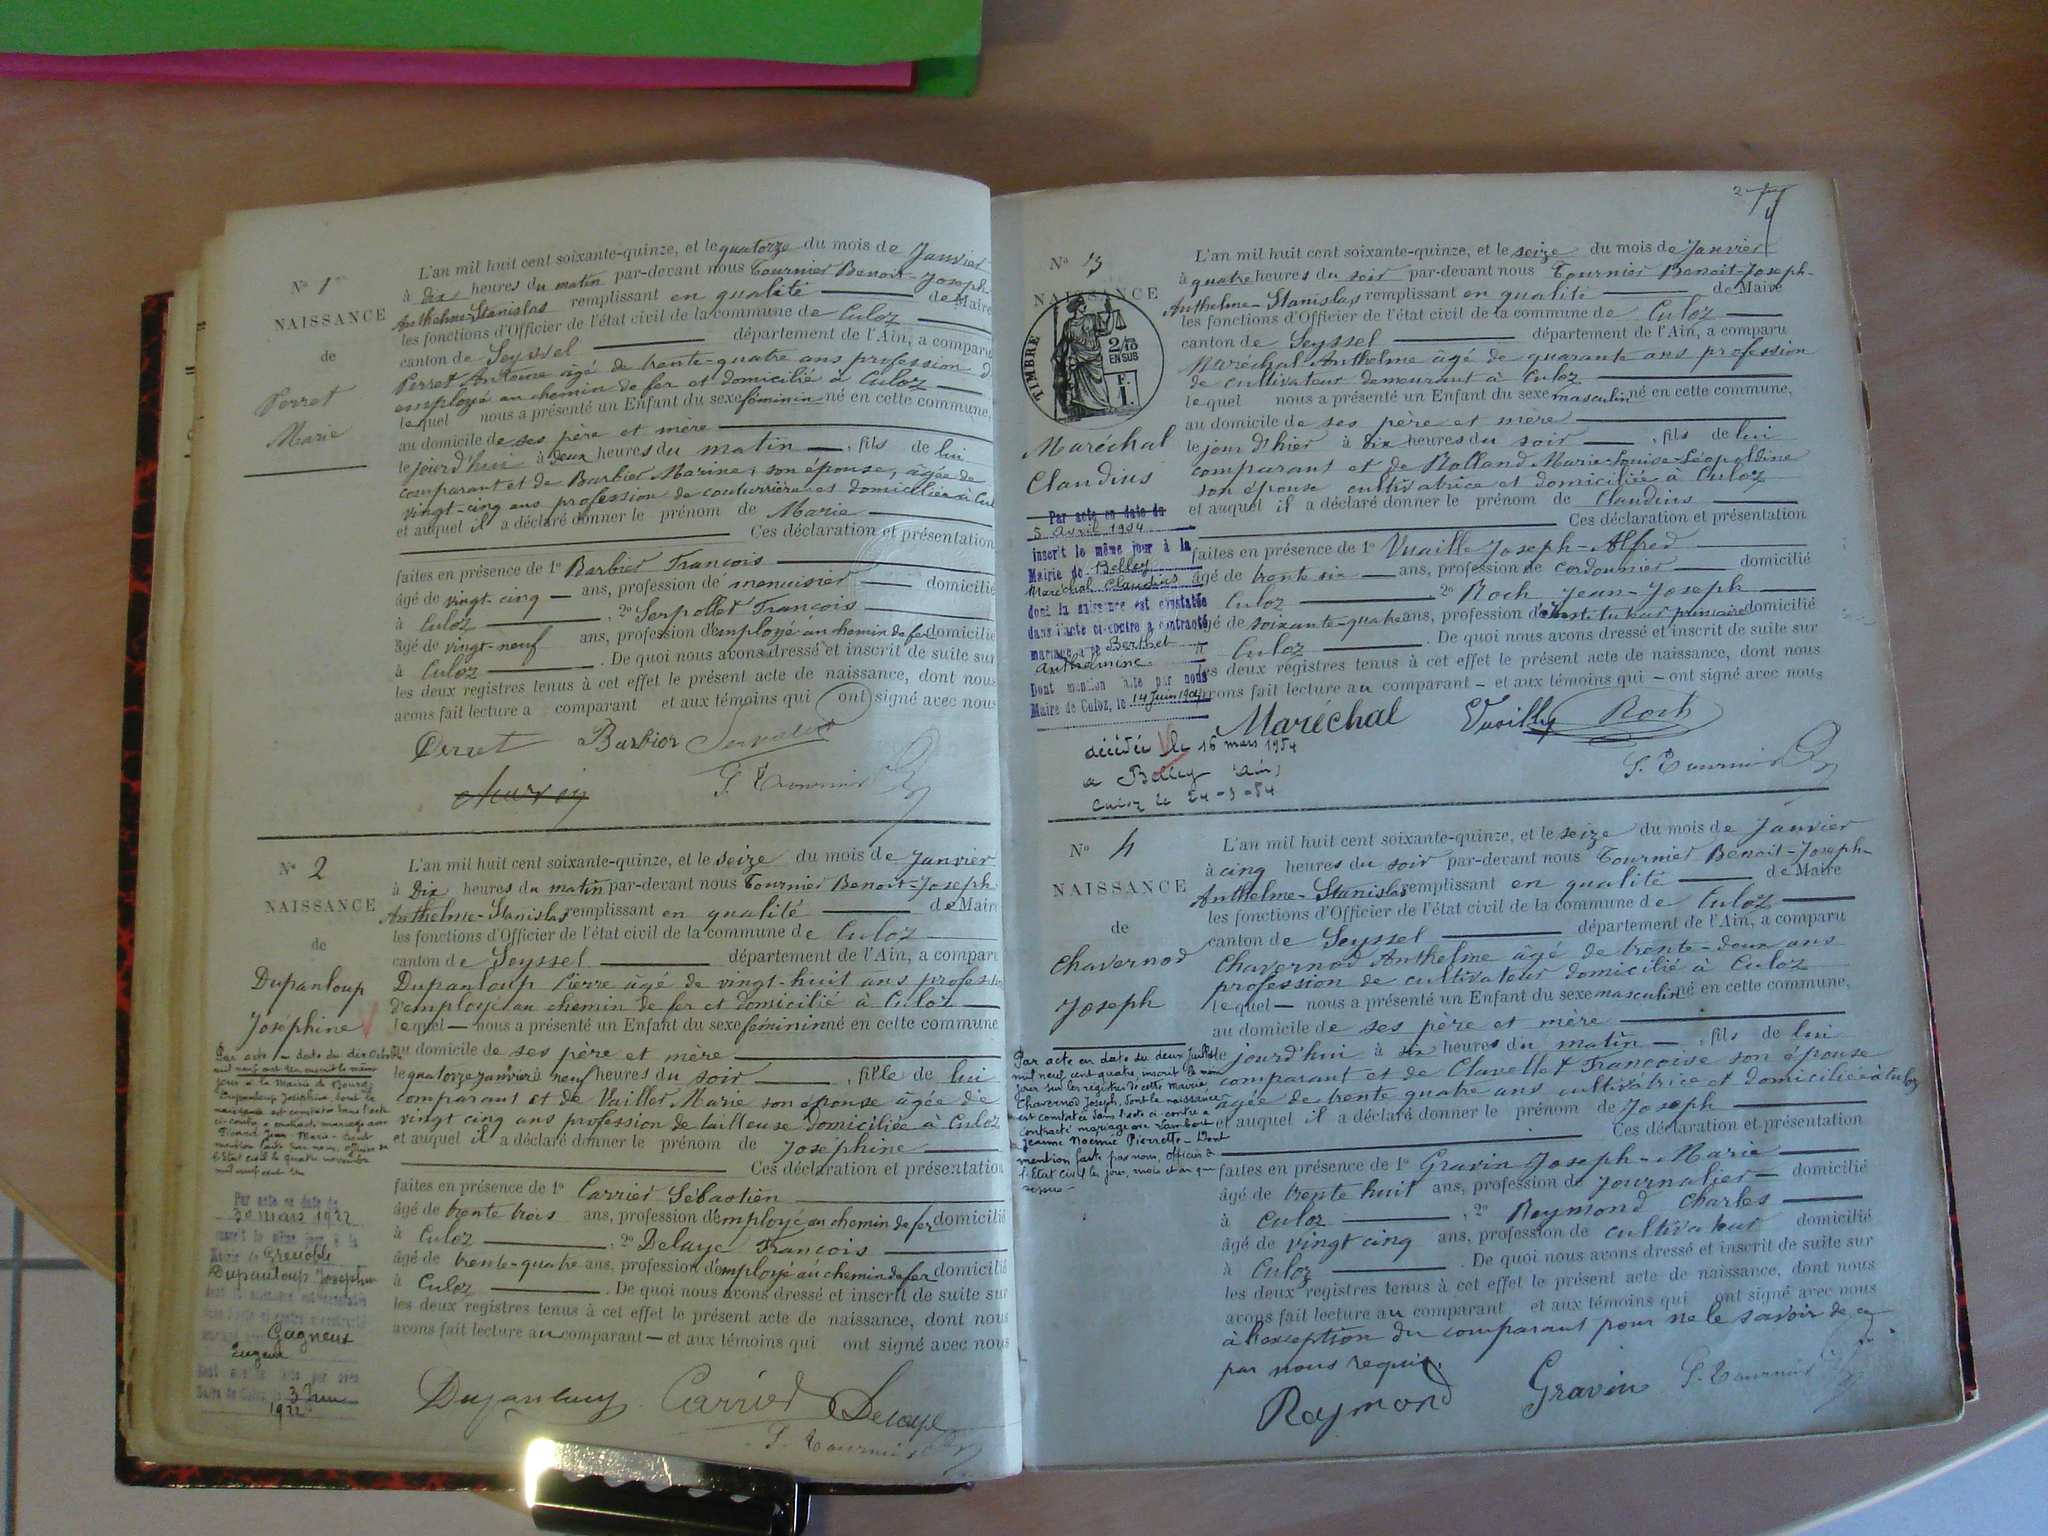 N° 1
NAISSANCE
de
Perret
Marie
L'an mil huit cent soixante-quinze, et le quatorze du mois de Janvier
à dix heures du matin par-devant nous Tournier Benoit-Joseph-
Anthelme-Stanislas remplissant en qualité de Maire
les fonctions d'Officier de l'état civil de la commune de Culoz
canton de Seyssel département de l'Ain, a comparu
Perret Antoine âgé de trente-quatre ans profession d
employé au chemin de fer et domicilié à Culoz
lequel nous a présenté un Enfant du sexe féminin né en cette commune,
au domicile de ses père et mère
le jourd'hui à deux heures du matin , fils de lui
comparant et de Barbier Marine, son épouse, âgée de
vingt-cinq ans profession de couturrière et domiciliée à Cul
et auquel il a déclaré donner le prénom de Marie
Ces déclaration et présentation
faites en présence de 1° Barbier François
âgé de vingt-cinq ans, profession de menuisier domicilié
à Culoz , 2° Serpollet François
âgé de vingt-neuf ans, profession d'employé au chemin de fer domicilié
à Culoz . De quoi nous avons dressé et inscrit de suite sur
les deux registres tenus à cet effet le présent acte de naissance, dont nous
avons fait lecture a comparant et aux témoins qui ont signé avec nous
Perret Barbier
S. Tournier
N° 2
NAISSANCE
de
Dupanloup
Joséphine
Par acte en date du dix Octobre
mil neuf cent un inscrit le même
jour à la Mairie de
Dupanloup Joséphine, dont la
naissance est constatée dans l'acte
ci-contre a contracté mariage avec
Jean Marie - Dont
mention faite par nous, officier de
l'Etat civil le quatre novembre
mil neuf cent un
Par acte en date du
30 mars 1922
inscrit le même jour à la
Mairie de Grenoble
Dupanloup Joséphine
Gagneux
Eugène
3 Juin
1922
L'an mil huit cent soixante-quinze, et le seize du mois de Janvier
à Dix heures du matin par-devant nous Tournier Benoit-Joseph
Anthelme-Stanislas remplissant en qualité de Maire
les fonctions d'Officier de l'état civil de la commune de Culoz
canton de Seyssel département de l'Ain, a comparu
Dupanloup Pierre âgé de vingt-huit ans professi
d'employé au chemin de fer et domicilié à Culoz
lequel nous a présenté un Enfant du sexe féminin né en cette commune
au domicile de ses père et mère
le quatorze janvier à neuf heures du soir , fille de lui
comparant et de Vaillet Marie son épouse âgée de
vingt cinq ans profession de tailleuse domiciliée à Culoz
et auquel il a déclaré donner le prénom de Joséphine
Ces déclaration et présentation
faites en présence de 1° Carrier Sébastien
âgé de trente trois ans, profession d'employé au chemin de fer domicilié
à Culoz , 2° Delaye François
âgé de trente-quatre ans, profession d'employé au chemin de fer domicilié
à Culoz . De quoi nous avons dressé et inscrit de suite sur
les deux registres tenus à cet effet le présent acte de naissance, dont nous
avons fait lecture au comparant et aux témoins qui ont signé avec nous
Dupanloup Carrier Delaye
S. Tournier
2
N° 3
NAISSANCE
TIMBRE
2/10
EN SUS
F.
1.
Maréchal
Claudius
Par acte en date du
5 Avril 1904
inscrit le même jour à la
Mairie de Belley
Maréchal Claudius
dont la naissance est constatée
dans l'acte ci-contre a contracté
mariage avec Berthet
Anthelmine
Dont mention faite par nous
Maire de Culoz, le 14 Juin 1904
décédé le 16 mars 1954
à Belley (Ain)
Culoz le 24-3-54
L'an mil huit cent soixante-quinze, et le seize du mois de Janvier
à quatre heures du soir par-devant nous Tournier Benoit-Joseph-
Anthelme-Stanislas remplissant en qualité de Maire
les fonctions d'Officier de l'état civil de la commune de Culoz
canton de Seyssel département de l'Ain, a comparu
Maréchal Anthelme âgé de quarante ans profession
de cultivateur demeurant à Culoz
lequel nous a présenté un Enfant du sexe masculin né en cette commune,
au domicile de ses père et mère
le jour d'hier à dix heures du soir , fils de lui
comparant et de Rolland Marie-Louise-Léopoldine
son épouse cultivatrice et domiciliée à Culoz
et auquel il a déclaré donner le prénom de Claudius
Ces déclaration et présentation
faites en présence de 1° Vuaille Joseph-Alfred
âgé de trente six ans, profession de cordonnier domicilié
à Culoz , 2° Roch Jean-Joseph
âgé de soixante-quatre ans, profession d'instituteur primaire domicilié
à Culoz . De quoi nous avons dressé et inscrit de suite sur
les deux registres tenus à cet effet le présent acte de naissance, dont nous
avons fait lecture au comparant et aux témoins qui ont signé avec nous
Maréchal Roch
S. Tournier
N° 4
NAISSANCE
de
Chavernod
Joseph
Par acte en date du deux Juillet
mil neuf cent quatre, inscrit le même
jour sur les registres de cette Mairie,
Chavernod Joseph, dont la naissance
est constatée dans l'acte ci-contre a
contracté mariage avec Lambert
Jeanne Noémie Pierrette - Dont
mention faite par nous, Officier de
l'Etat Civil les jour, mois et an que
dessus
L'an mil huit cent soixante-quinze, et le seize du mois de Janvier
à cinq heures du soir par-devant nous Tournier Benoit-Joseph-
Anthelme-Stanislas remplissant en qualité de Maire
les fonctions d'Officier de l'état civil de la commune de Culoz
canton de Seyssel département de l'Ain, a comparu
Chavernod Anthelme âgé de trente-deux ans
profession de cultivateur domicilié à Culoz
lequel nous a présenté un Enfant du sexe masculin né en cette commune,
au domicile de ses père et mère
le jourd'hui à six heures du matin , fils de lui
comparant et de Clavellet Françoise son épouse
âgée de trente quatre ans cultivatrice et domiciliée à Culoz
et auquel il a déclaré donner le prénom de Joseph
Ces déclaration et présentation
faites en présence de 1° Gravin Joseph-Marie
âgé de trente huit ans, profession de journalier domicilié
à Culoz , 2° Reymond Charles
âgé de vingt cinq ans, profession de cultivateur domicilié
à Culoz . De quoi nous avons dressé et inscrit de suite sur
les deux registres tenus à cet effet le présent acte de naissance, dont nous
avons fait lecture au comparant et aux témoins qui ont signé avec nous
à l'exception du comparant pour ne le savoir de ce
par nous requis.
Raymond Gravin S. Tournier